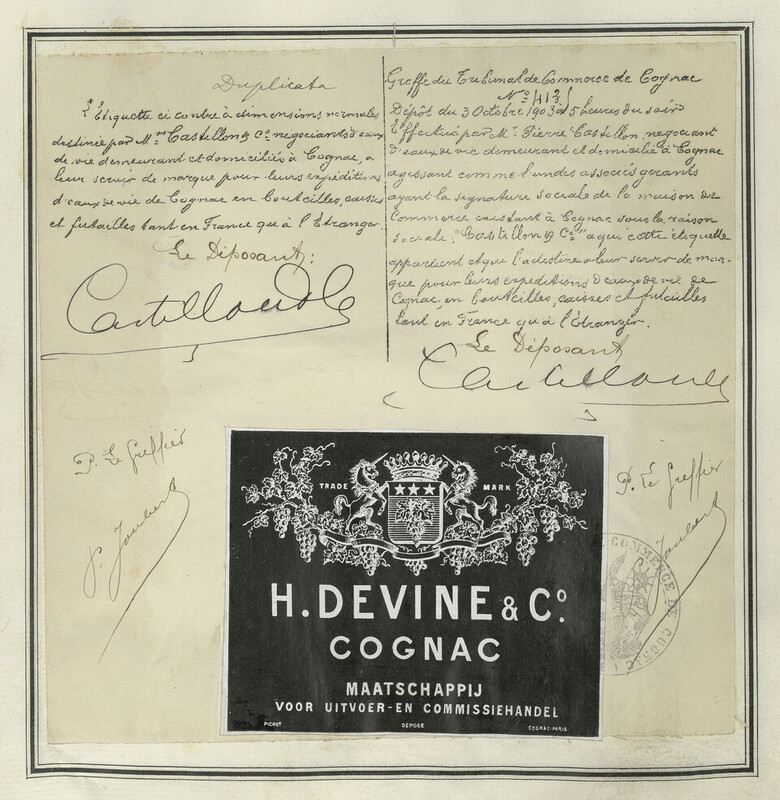 Duplicata
L'Etiquette ci contre à dimensions normales
destinée par M.rs Castellon & Co négociants d'eaux
de vie demeurant et domiciliés à Cognac, a
leur servir de marque pour leurs expéditions
d'eaux de vie de Cognac en bouteilles, caisses
et futailles tant en France qu'à l'Etranger.
Le Déposant:
Castellon & Co
Greffe du Tribunal de Commerce de Cognac
No
Dépôt du 3 Octobre 1903 à 5 heures du soir
Effectué par Mr Pierre Castellon, négociant
d'eaux de vie demeurant et domicilié à Cognac
agissant comme l'un des associés gérants
ayant la signature sociale de la maison de
Commerce existant à Cognac sous la raison
sociale: "Castellon & Co" a qui cette étiquette
appartient et que l'a destinée a leur servir de mar-
que pour leurs expéditions d'eaux de vie de
Cognac en bouteilles, caisses et futailles
tant en France qu'à l'Etranger.
Le Déposant
Castellon &
P. Le Greffier
P. Joubert
P. Le Greffier
Joubert
COMMERCE DE COGNAC
TRADE MARK
H. DEVINE & Co.
COGNAC
MAATSCHAPPIJ
VOOR UITVOER-EN COMMISSIEHANDEL
PICHOT DÉPOSÉ COGNAC-PARIS